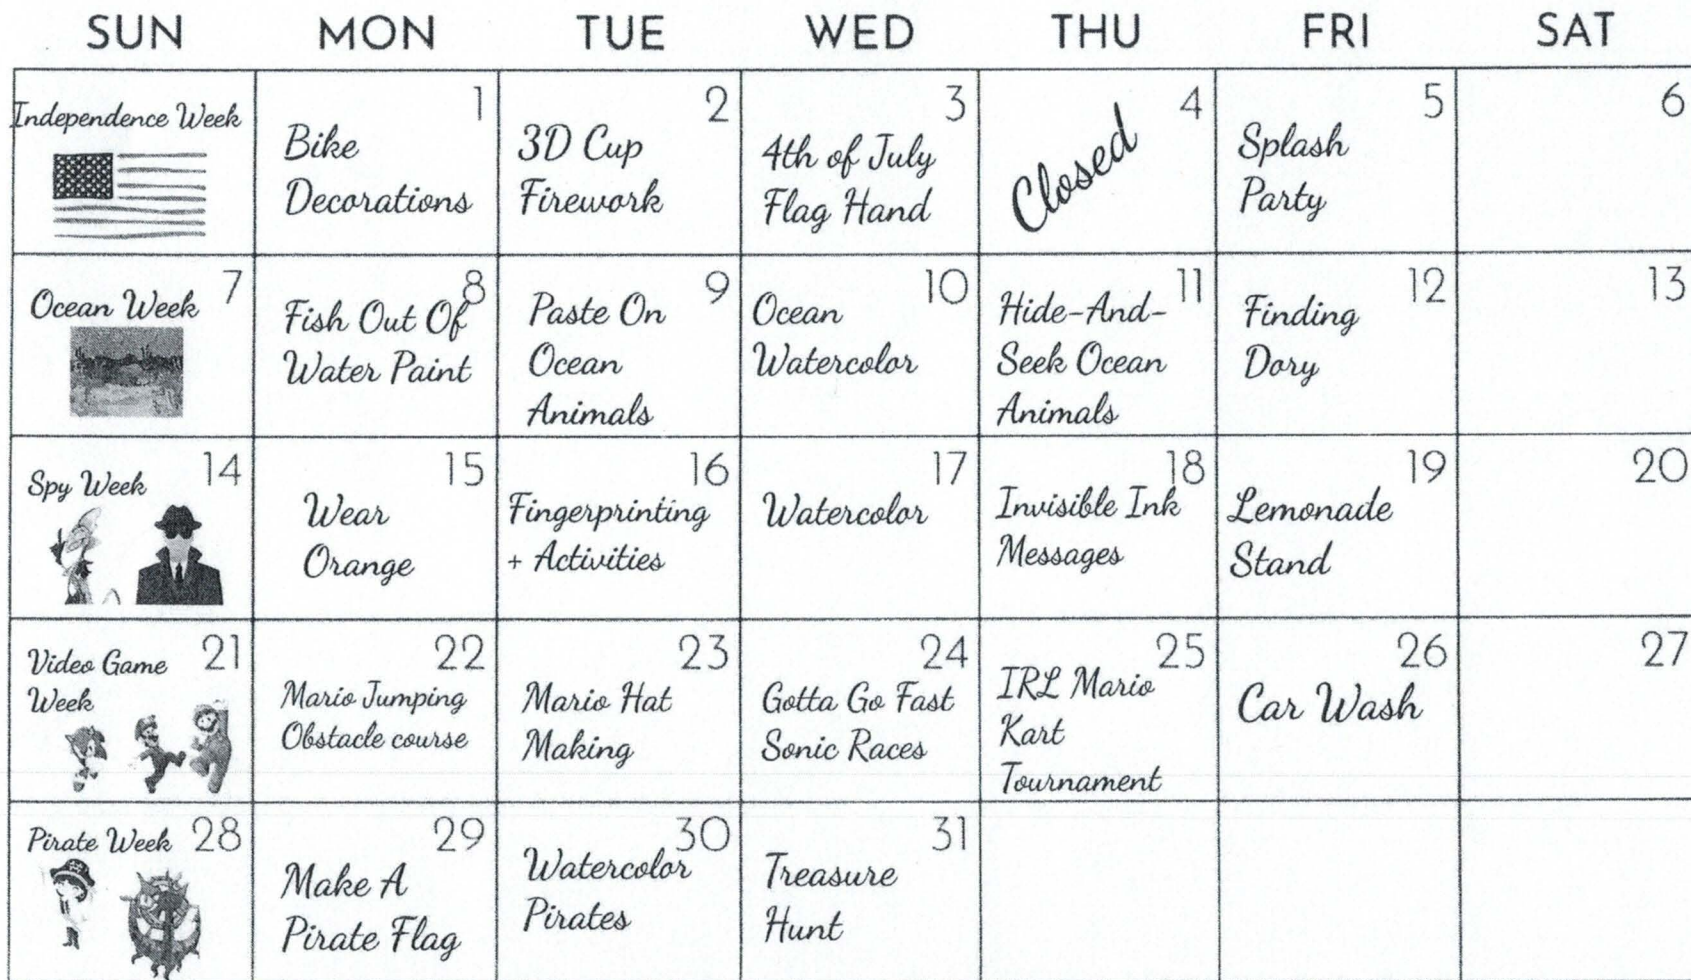 SUN MON TUE WED THU FRI SAT
Independence Week
1
Bike
Decorations
2
3D Cup
Firework
3
4th of July
Flag Hand
4
Closed
5
Splash
Party
6
Ocean Week 7
8
Fish Out Of
Water Paint
9
Paste On
Ocean
Animals
10
Ocean
Watercolor
11
Hide-And-
Seek Ocean
Animals
12
Finding
Dory
13
Spy Week 14
15
Wear
Orange
16
Fingerprinting
+ Activities
17
Watercolor
18
Invisible Ink
Messages
19
Lemonade
Stand
20
Video Game 21
Week
22
Mario Jumping
Obstacle course
23
Mario Hat
Making
24
Gotta Go Fast
Sonic Races
25
IRL Mario
Kart
Tournament
26
Car Wash
27
Pirate Week 28
29
Make A
Pirate Flag
30
Watercolor
Pirates
31
Treasure
Hunt